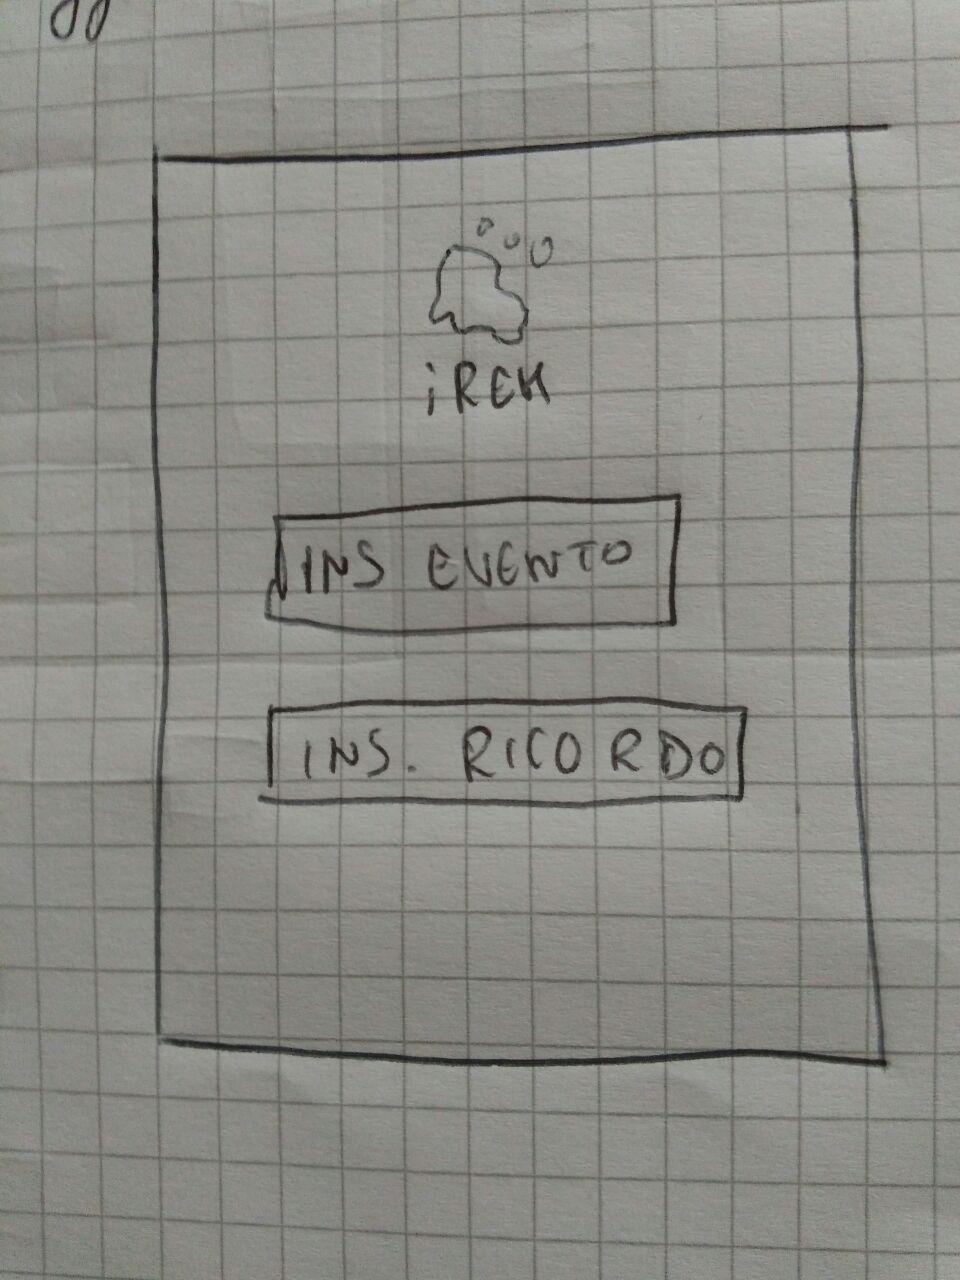 iREM
INS EVENTO
INS. RICORDO